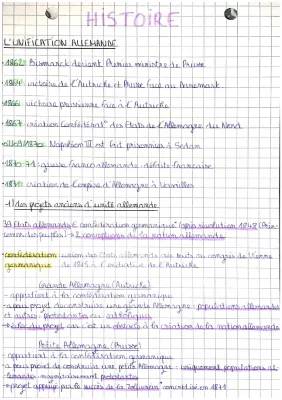 HISTOIRE
L'UNIFICATION ALLEMANDE
•1862: Bismarck devient Premier ministre de Prusse
•1864: victoire de l'Autriche et Prusse face au Danemark
•1866 victoire prussienne face à l'Autriche
•1867 création Confédérat° des États de l'Allemagne du Nord
1870: Napoléon III est fait prisonnier à Sedan
•1870-71: guerre franco-allemande: défaite française
•1871: création de l'empire d'Allemagne à Versailles
-1) des projets anciens d'unité allemande
39 États allemands ∈ confédération germanique (après révolution 1848 (Prin-
temps des peuples) → 2 conceptions de la nation allemande
•confédération union des États allemands issue du congrès de Vienne
germanique de 1815 à l'initiative de l'Autriche
Grande Allemagne (Autriche)
- appartient à la confédération germanique
- a pour projet de construire une grande Allemagne: populations allemandes
et autres protestantes ou catholiques
du projet car c'est un obstacle à la création de la nation allemande
Petite Allemagne (Prusse)
- appartient à la confédération germanique
- a pour projet de construire une petite Allemagne: uniquement populations al-
lemande majoritairement protestantes
→ projet appuyé par le succès de la Zollverein concrétisé en 1871